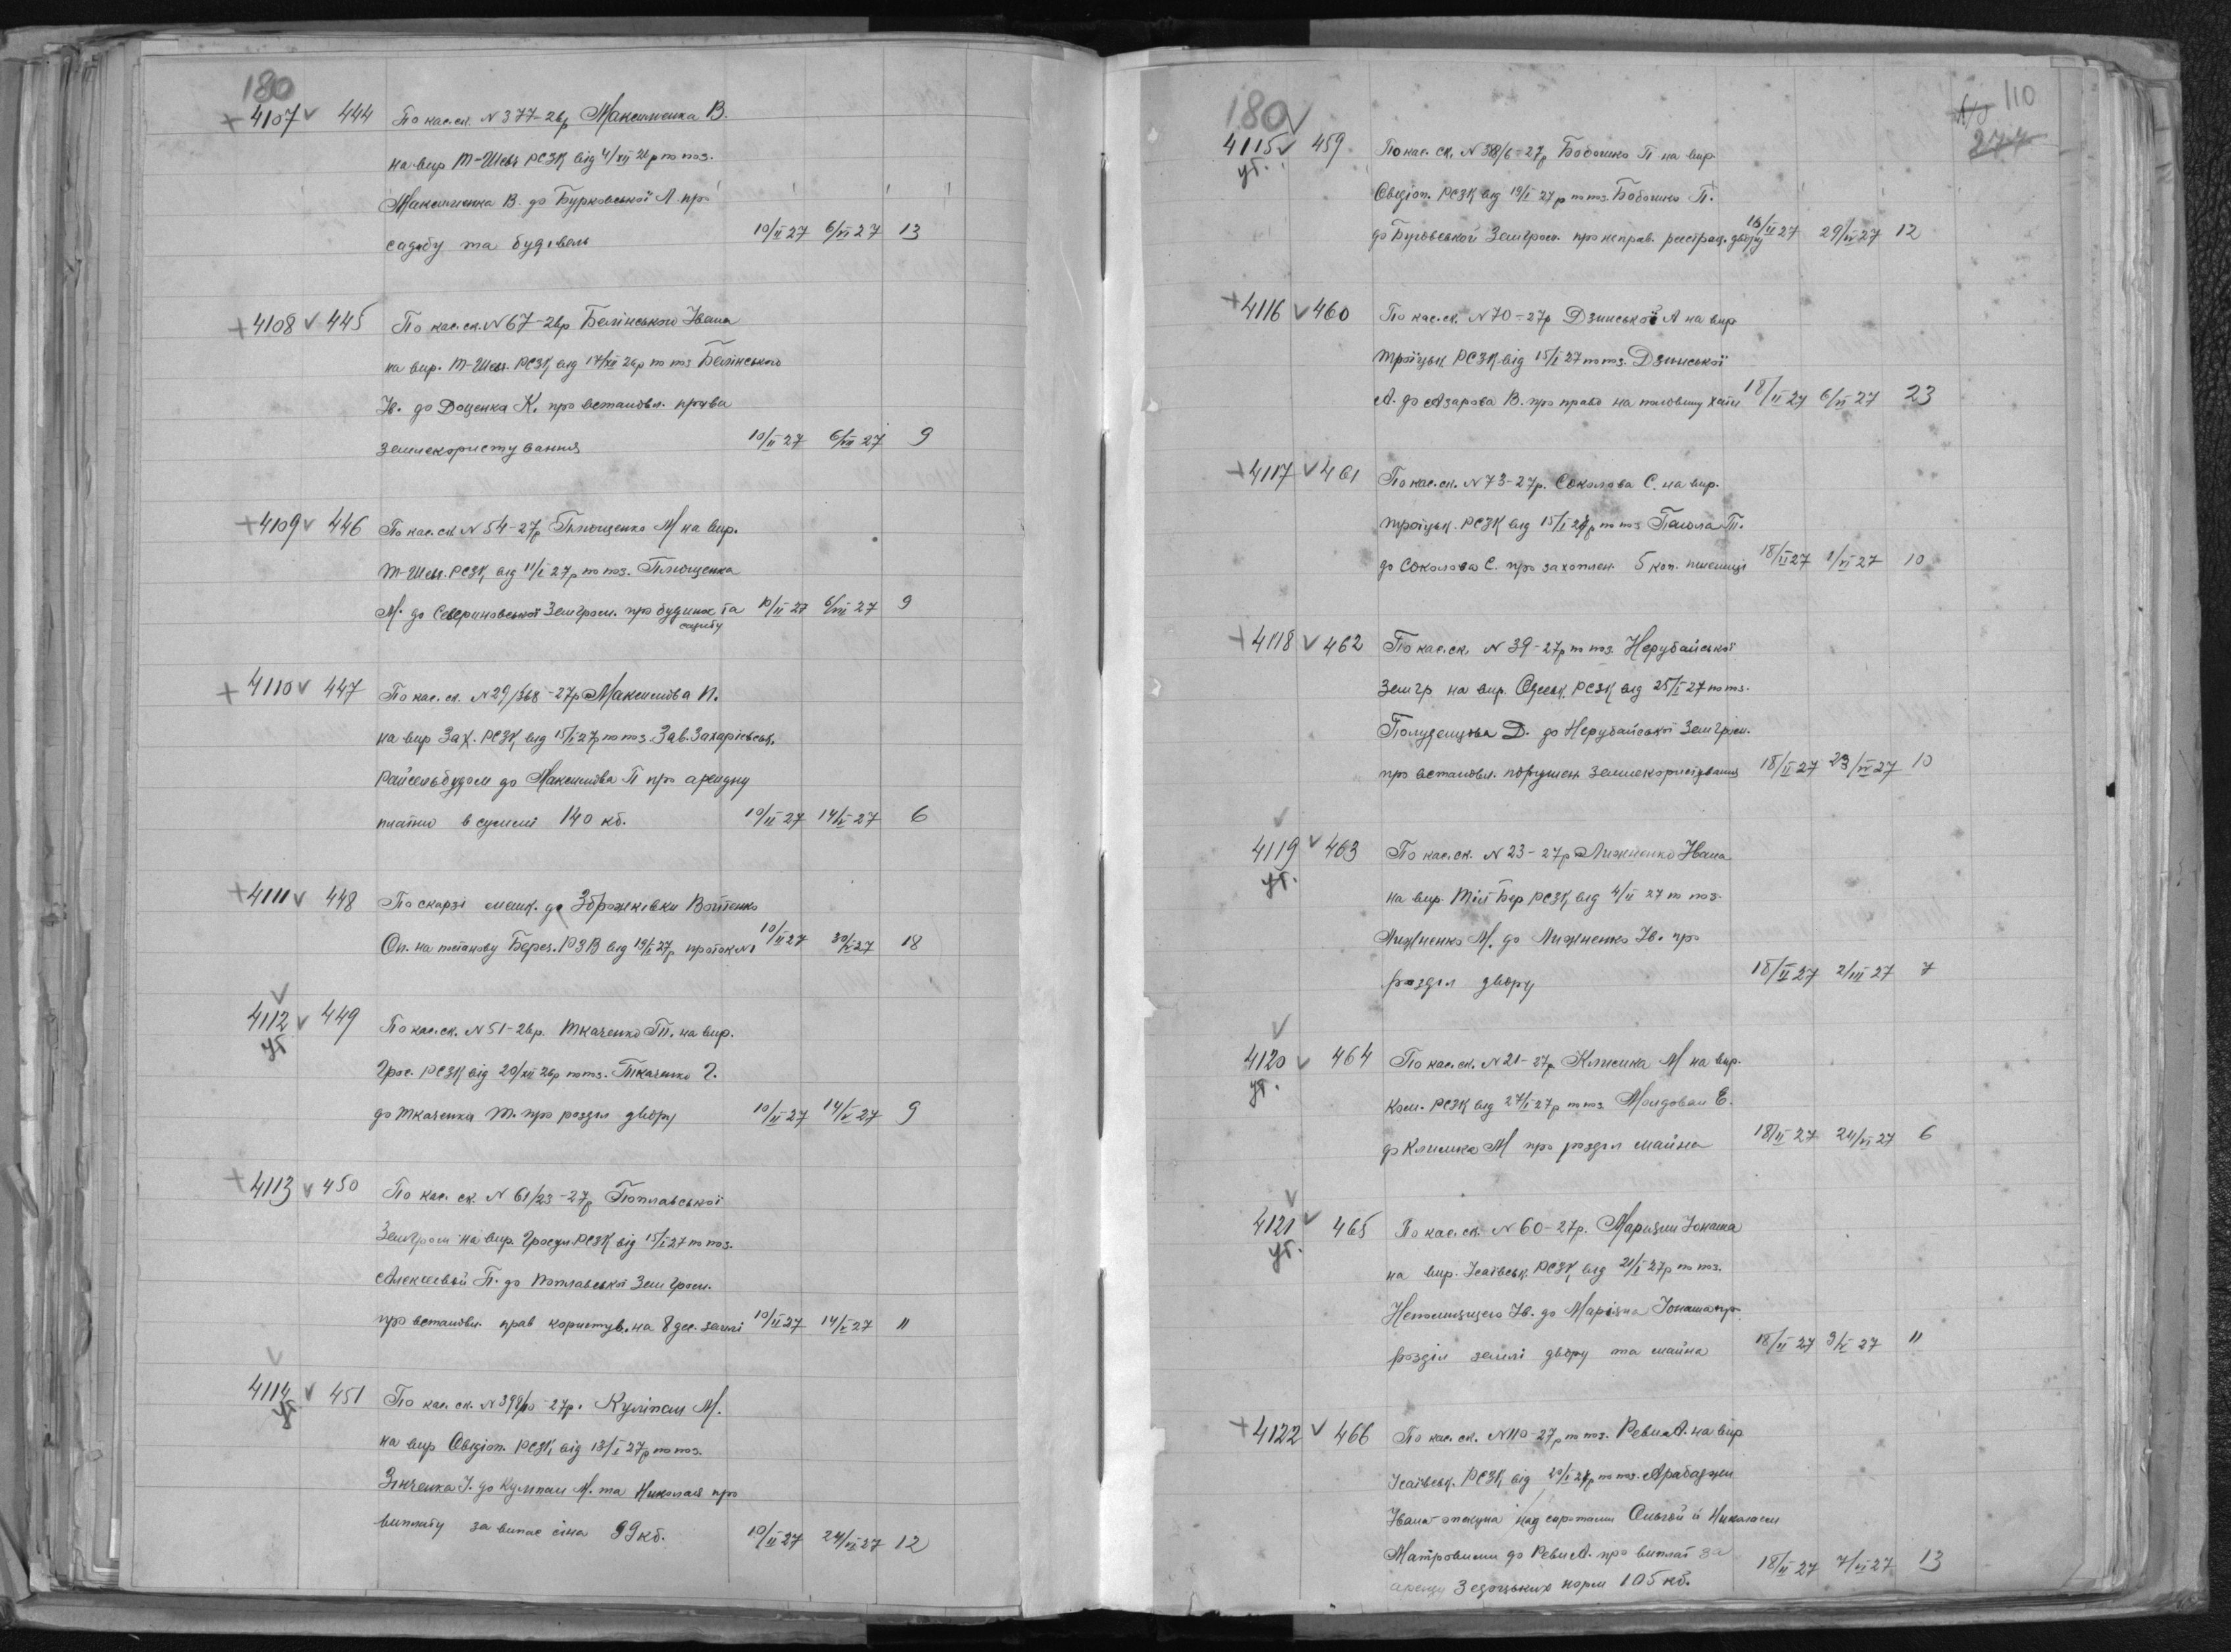 180
+ 4107 v 444 По кас. ск. N 377-26р Максименка В.
на вир Т-Шевч РСЗК від 4/XII 26р по поз.
Максименка В. до Бурковської А. про
садибу та будівель 10/II 27 6/VI 27 13
+ 4108 v 445 По кас. ск. N 67-26р Белінського Івана
на вир. Т-Шевч. РСЗК від 17/XII 26р по поз Белінського
Ів. до Доценка К. про встановл. права
землекористування 10/II 27 6/VII 27 9
+ 4109 v 446 По кас. ск N 54-27р Плющенко М на вир.
Т-Шевч. РСЗК від 11/I 27р по поз. Плющенка
М. до Севериновської Земгром. про будинок та 10/II 27 6/VII 27 9
садибу
+ 4110 v 447 По кас. ск. N 29/368-27р Максимова П.
на вир Зах. РСЗК від 15/I 27р по поз. Зав. Захарієвськ.
Райсельбудом до Максимова П про арендну
платню в суммі 140 кб. 10/II 27 14/V 27 6
+ 4111 v 448 По скарзі мешк. д. Зброжківки Войтенко
Он. на постанову Берез. РЗВ від 19/I 27р проток N1 10/II 27 30/V 27 18
v
4112 v 449 По кас. ск. N 51-26р. Ткаченко П. на вир.
ут
Грос. РСЗК від 20/XII 26р по поз. Ткаченко Г.
до Ткаченка Т. про розділ двору 10/II 27 14/V 27 9
+ 4113 v 450 По кас. ск. N 61/23-27р Поплавської
Земгром на вир. Гросул РСЗК від 15/I 27 по поз.
Алексеєвой П. до Поплавської Земгром.
про встановл. прав користув. на 8 дес. землі 10/II 27 14/V 27 11
v
4114 v 451 По кас. ск. N 398/10-27р. Куліпам М.
ут
на вир Овідіоп. РСЗК від 13/I 27р по поз.
Зінченка І. до Куліпам М. та Николая про
виплату за випас сіна 99 кб. 10/II 27 24/VI 27 12
180 v
110
277
4115 v 459 По кас. ск. N 388/6-27р Бобошко П на вир
ут.
Овідіоп. РСЗК від 19/I 27р по поз. Бобошко П.
до Буговської Земгром. про неправ. реєстрац. двору 18/II 27 29/IV 27 12
+ 4116 v 460 По кас. ск. N 70-27р Дзинської А на вир
Троїцьк РСЗК від 15/I 27 по поз. Дзинської
А. до Азарова В. про право на половину хати 18/II 27 6/VI 27 23
+ 4117 v 461 По кас. ск. N 73-27р. Соколова С. на вир.
Троїцьк. РСЗК від 15/I 27р по поз П.
до Соколова С. про захоплен 5 коп. пшениці 18/II 27 1/VI 27 10
+ 4118 v 462 По кас. ск. N 39-27р по поз. Нерубайської
Земгр на вир. Одеськ. РСЗК від 25/I 27 по поз.
Полуденцова Д. до Нерубайської Земгром.
про встановл. порушен. землекористування 18/II 27 23/IV 27 10
v
4119 v 463 По кас. ск. N 23-27р Лижненко Івана
ут.
на вир. Тіл Бер РСЗК від 4/II 27 по поз.
Лижненко М. до Лижненко Ів. про
розділ двору 18/II 27 2/III 27 7
v
4120 v 464 По кас. ск. N 21-27р Климка М на вир.
ут.
Ком. РСЗК від 27/I 27р по поз. Молдован Е.
до Климка М про розділ майна 18/II 27 24/VI 27 6
v
4121 v 465 По кас. ск. N 60-27р. Марцян Іонаша
ут.
на вир. Ісаївськ. РСЗК від 21/I 27р по поз.
Непомнящего Ів. до Маріяна Іонаша пр.
розділ землі двору та майна 18/II 27 9/V 27 11
+ 4122 v 466 По кас. ск. N 110-27р по поз. Реви А. на вир
Ісаївськ. РСЗК від 20/I 27р по поз. Арабаджи
Івана опекуна над сиротами Ольгой й Николаем
Матровими до Реви А. про виплат за
аренди 3 едоцьких норм 105 кб. 18/II 27 7/VI 27 13